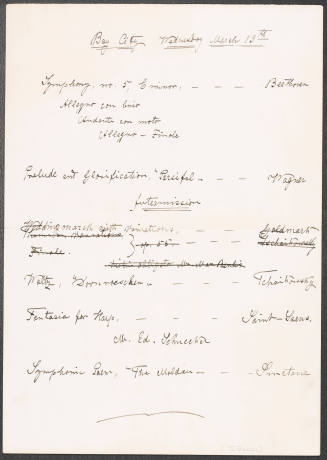 Bay City Wednesday March 13th
Symphony, no. 5, C minor, - - - Beethoven
Allegro con brio
Andante con moto
Allegro - Finale
Prelude and Glorification, "Parsifal" - - Wagner
Intermission
Wedding march with Variations, - - - Goldmark
Finale. - - - Tschaikowsky
Violin obligato Mr. Max Bendix
Waltz, "Dornroeschen" - - - Tschaikowsky
Fantasia for Harp, - - - - Saint-Saens.
Mr. Ed. Schuecker
Symphonic Poem, "The Moldau" - - - Smetana